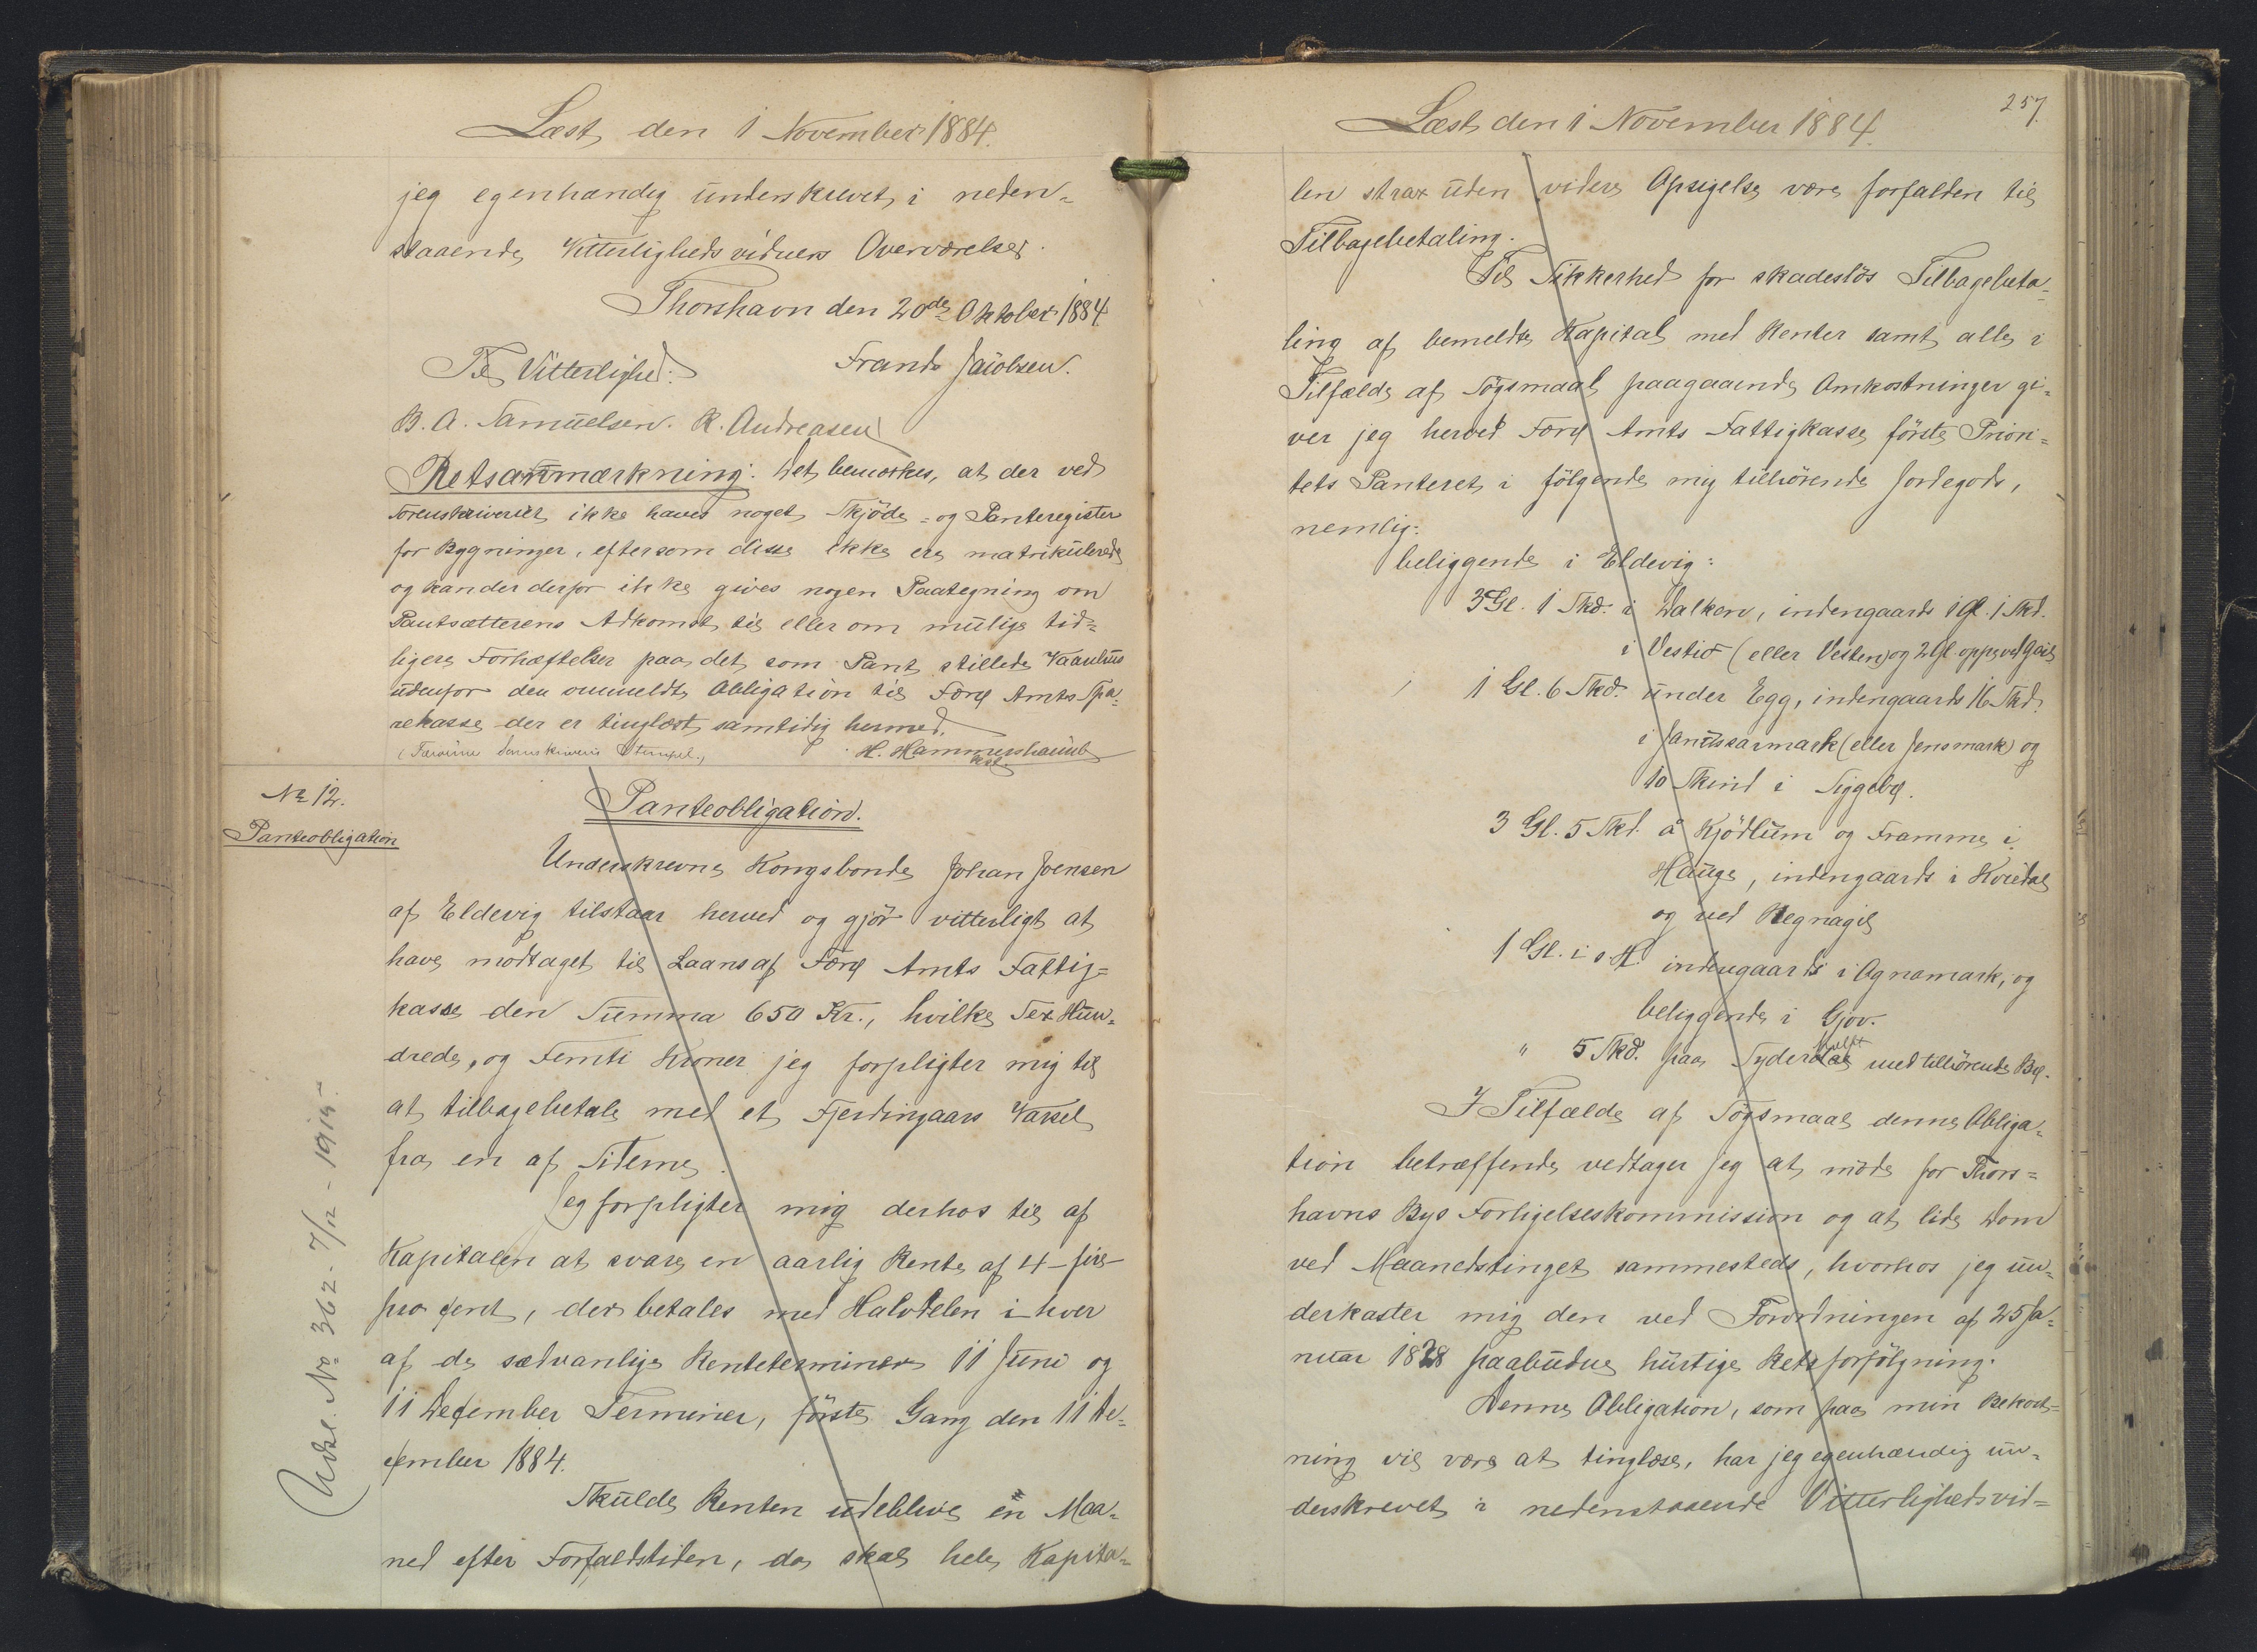 Læst den 1 November 1884.
jeg egenhændig underskrevet i neden-
staaende Vitterligheds vidners Overværelse.
Thorshavn den 20de Oktober 1884
Til Vitterlighed: Frants Jacobsen.
B. A. Samuelsen. K. Andreasen
Retsanmærkning: Det bemærkes, at der ved
Sorenskriveriet ikke haves noget Skjöde- og Panteregister
for Bygninger, eftersom disse ikke ere matrikulerede
og kan der derfor ikke gives nogen Paategning om
Pantsætterens Adkomst til eller om mulige tid-
ligere Forhæftelser paa det som Pant stillede Vaanhus
udenfor den ommeldte Obligation til Færø Amts Spa-
rekasse der er tinglæst samtidig hermed.
(Færöerne Sorenskrivers Stempel.) H. Hammershaimb
kst.
No 12.
Panteobligation
Panteobligation.
Underskrevne Kongsbonde Johan Joensen
af Eldevig tilstaar herved og gjör vitterligt at
have modtaget til Laans af Færø Amts Fattig-
kasse den Summa 650 Kr., hvilke Sex Hun-
drede, og Femti Kroner jeg forpligter mig til
at tilbagebetale med et Fjerdingaars Varsel
fra en af Siderne.
Jeg forpligter mig derhos til af
Kapitalen at svare en aarlig Rente af 4 - fire
pro cent, der betales med Halvdelen i hver
af de sædvanlige Renteterminer 11 Juni og
11 December Terminer, förste Gang den 11 De-
cember 1884.
Skulde Renten udeblive en Maa-
ned efter Forfaldstiden, da skal hele Kapita-
Udsl. No 362 - 7/12 - 1915.
257.
Læst den 1 November 1884.
len strax uden videre Opsigelse være forfalden til
Tilbagebetaling.
Til Sikkerhed for skadeslös Tilbagebeta-
ling af bemeldte Kapital med Renter samt alle i
Tilfælde af Sögsmaal paagaaende Omkostninger gi-
ver jeg herved Færø Amts Fattigkasse förste Priori-
tets Panteret i fölgende mig tilhörende Jordegods,
nemlig:
beliggende i Eldevig:
3 Gl. 1 Skd. i Dalken, indengaards 1 Gl. 1 Skd.
i Vestið (eller Vesten) og 2 Gl. oppe ved Gail
1 Gl. 6 Skd. under Egg, indengaards 16 Skd.
i Janusarmark (eller Jensmark) og
10 Skind i Siggebø.
3 Gl. 5 Skd. á Kjödlum og Framme i
Hauge, indengaards i Kvidal
og ved Regnagil
1 Gl. i s. H. indengaards i Ognamark, og
beliggende i Gjov.
" 5 Skd. paa Syderdal med tilhörende Bø.
I Tilfælde af Sögsmaal denne Obliga-
tion betræffende vedtager jeg at möde for Thors-
havns Bys Forligelseskommission og at lide Dom
ved Maanedstinget sammesteds, hvorhos jeg un-
derkaster mig den ved Forordningen af 25 Ja-
nuar 1828 paabudne hurtige Retsforfölgning.
Denne Obligation, som paa min Bekost-
ning vil være at tinglæse, har jeg egenhændig un-
derskrevet i nedenstaaende Vitterlighedsvid-